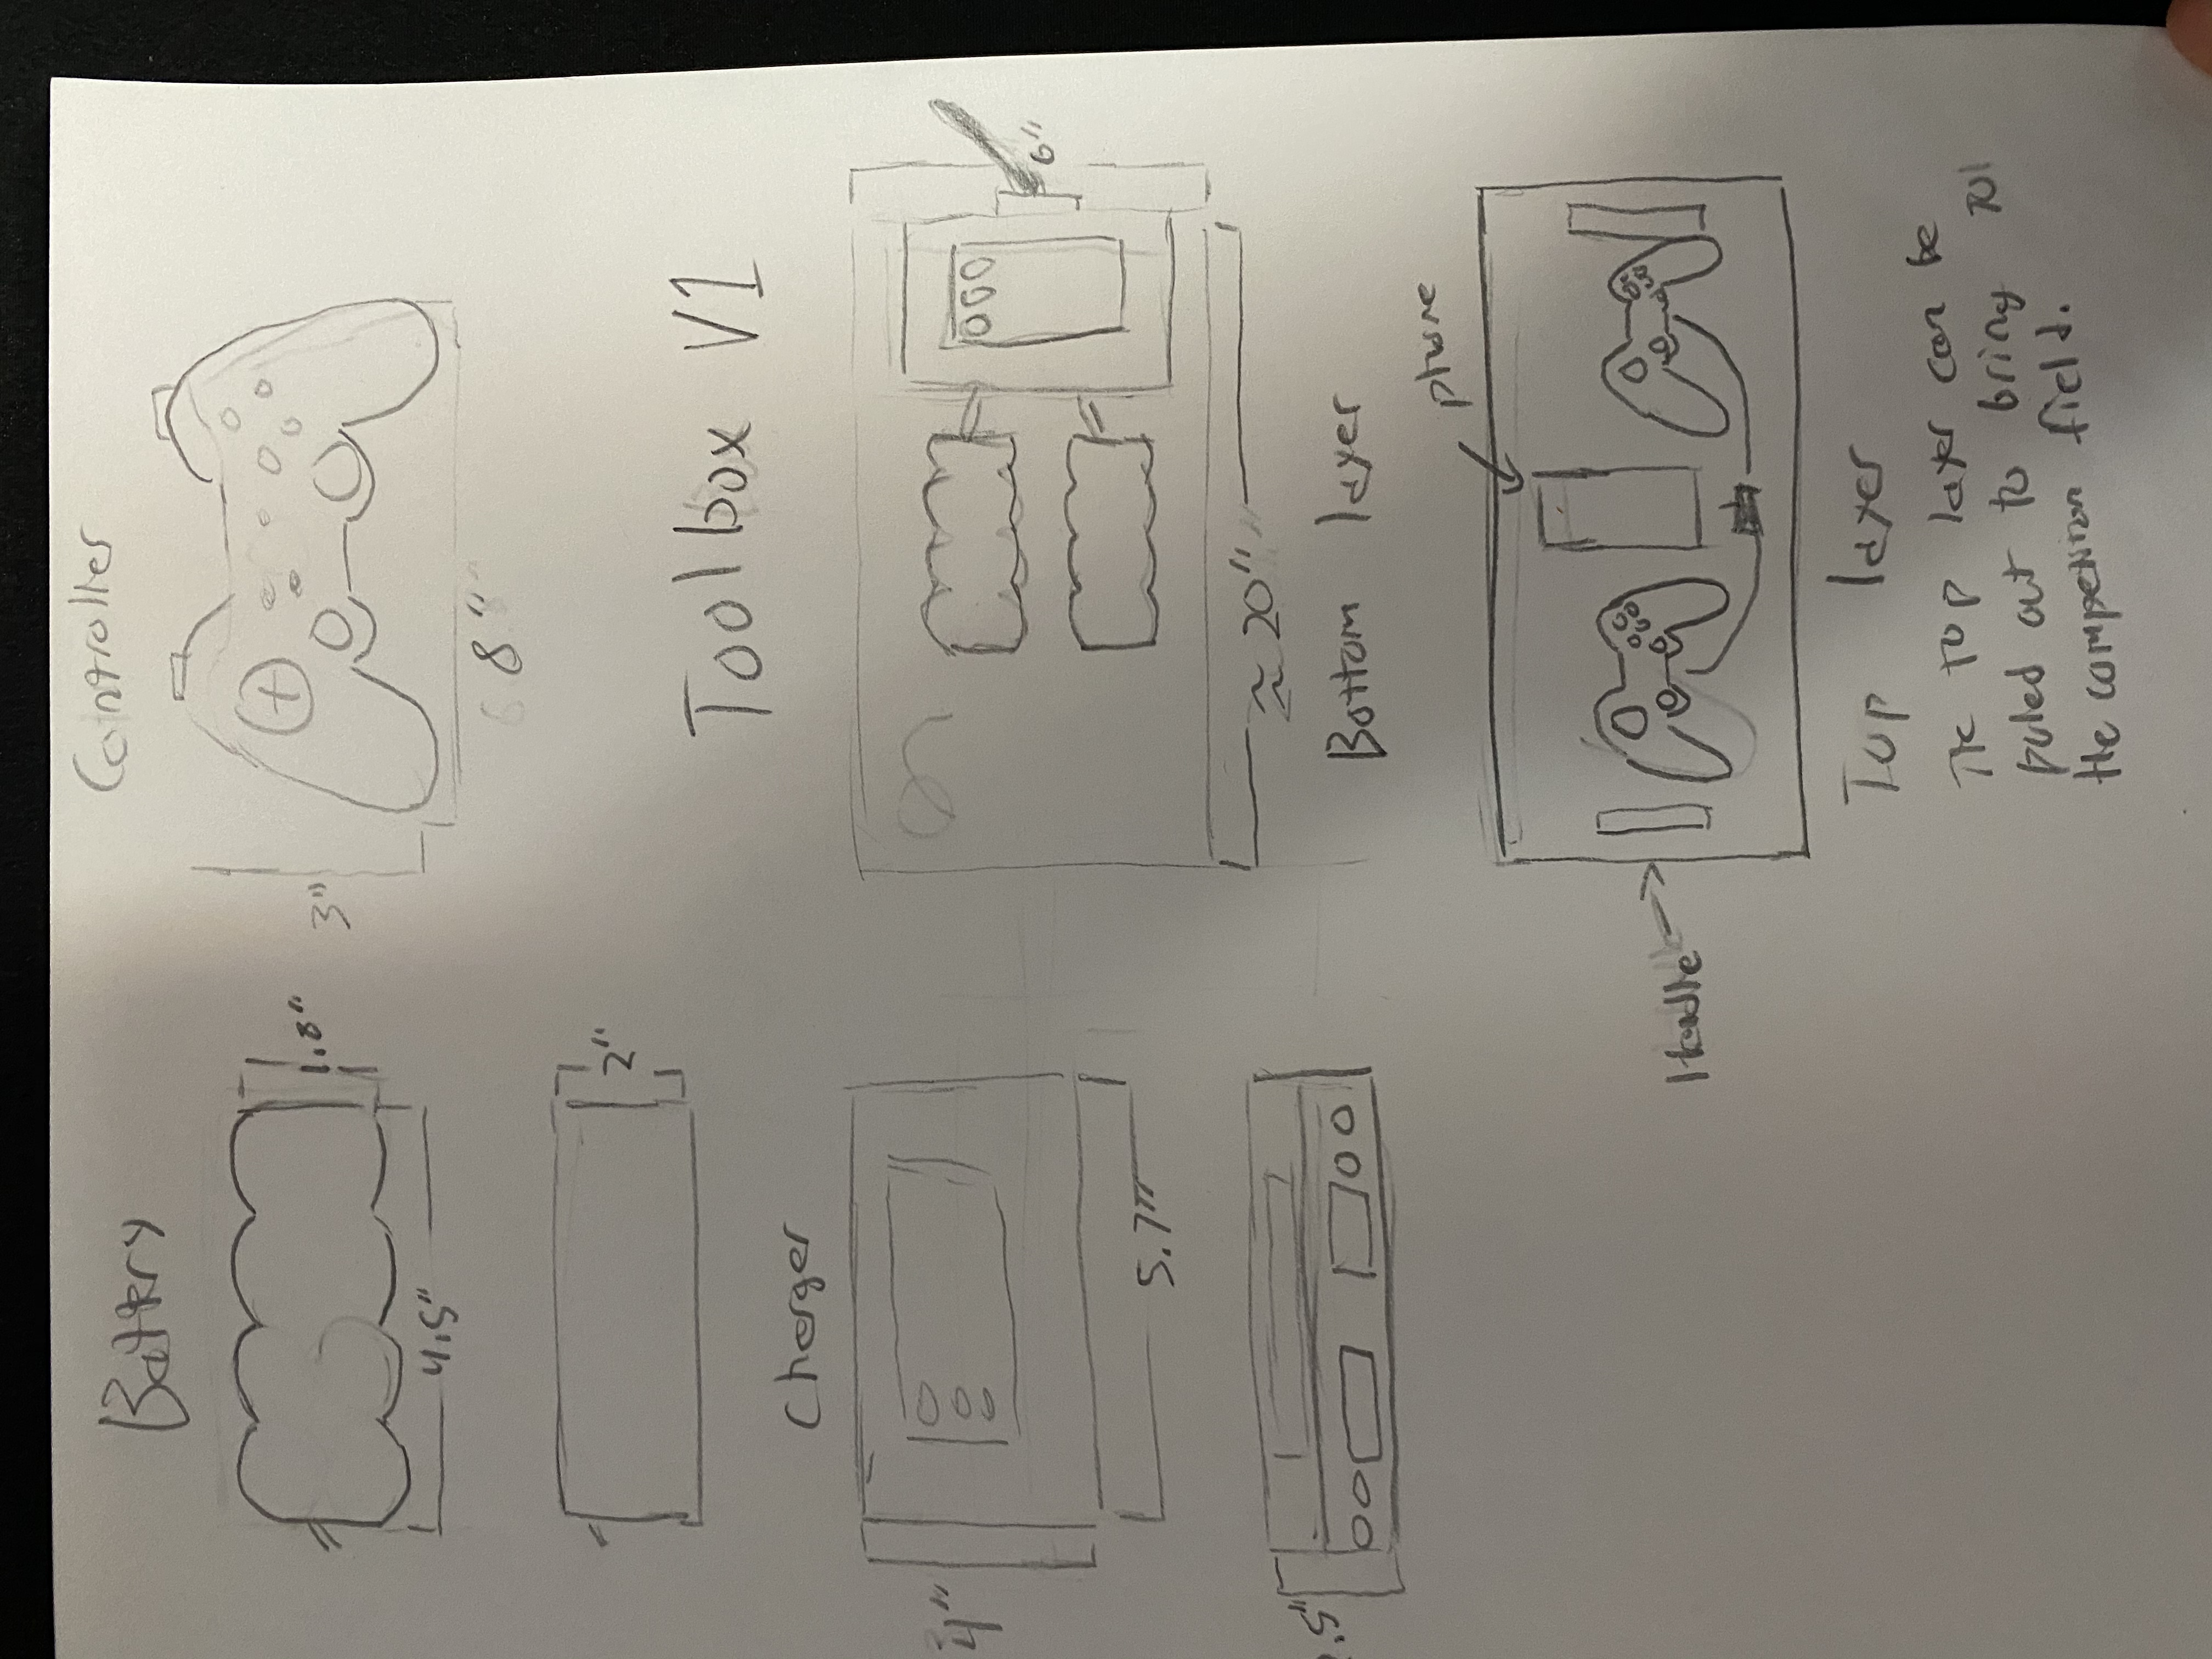 Battery
1.8"
4.5"
2"
Charger
4"
5.7"
.5"
Controller
3"
8"
Toolbox V1
6"
≈ 20"
Bottom layer
phone
Handle
Top layer
The top layer can be
puled out to bring to
the competition field.